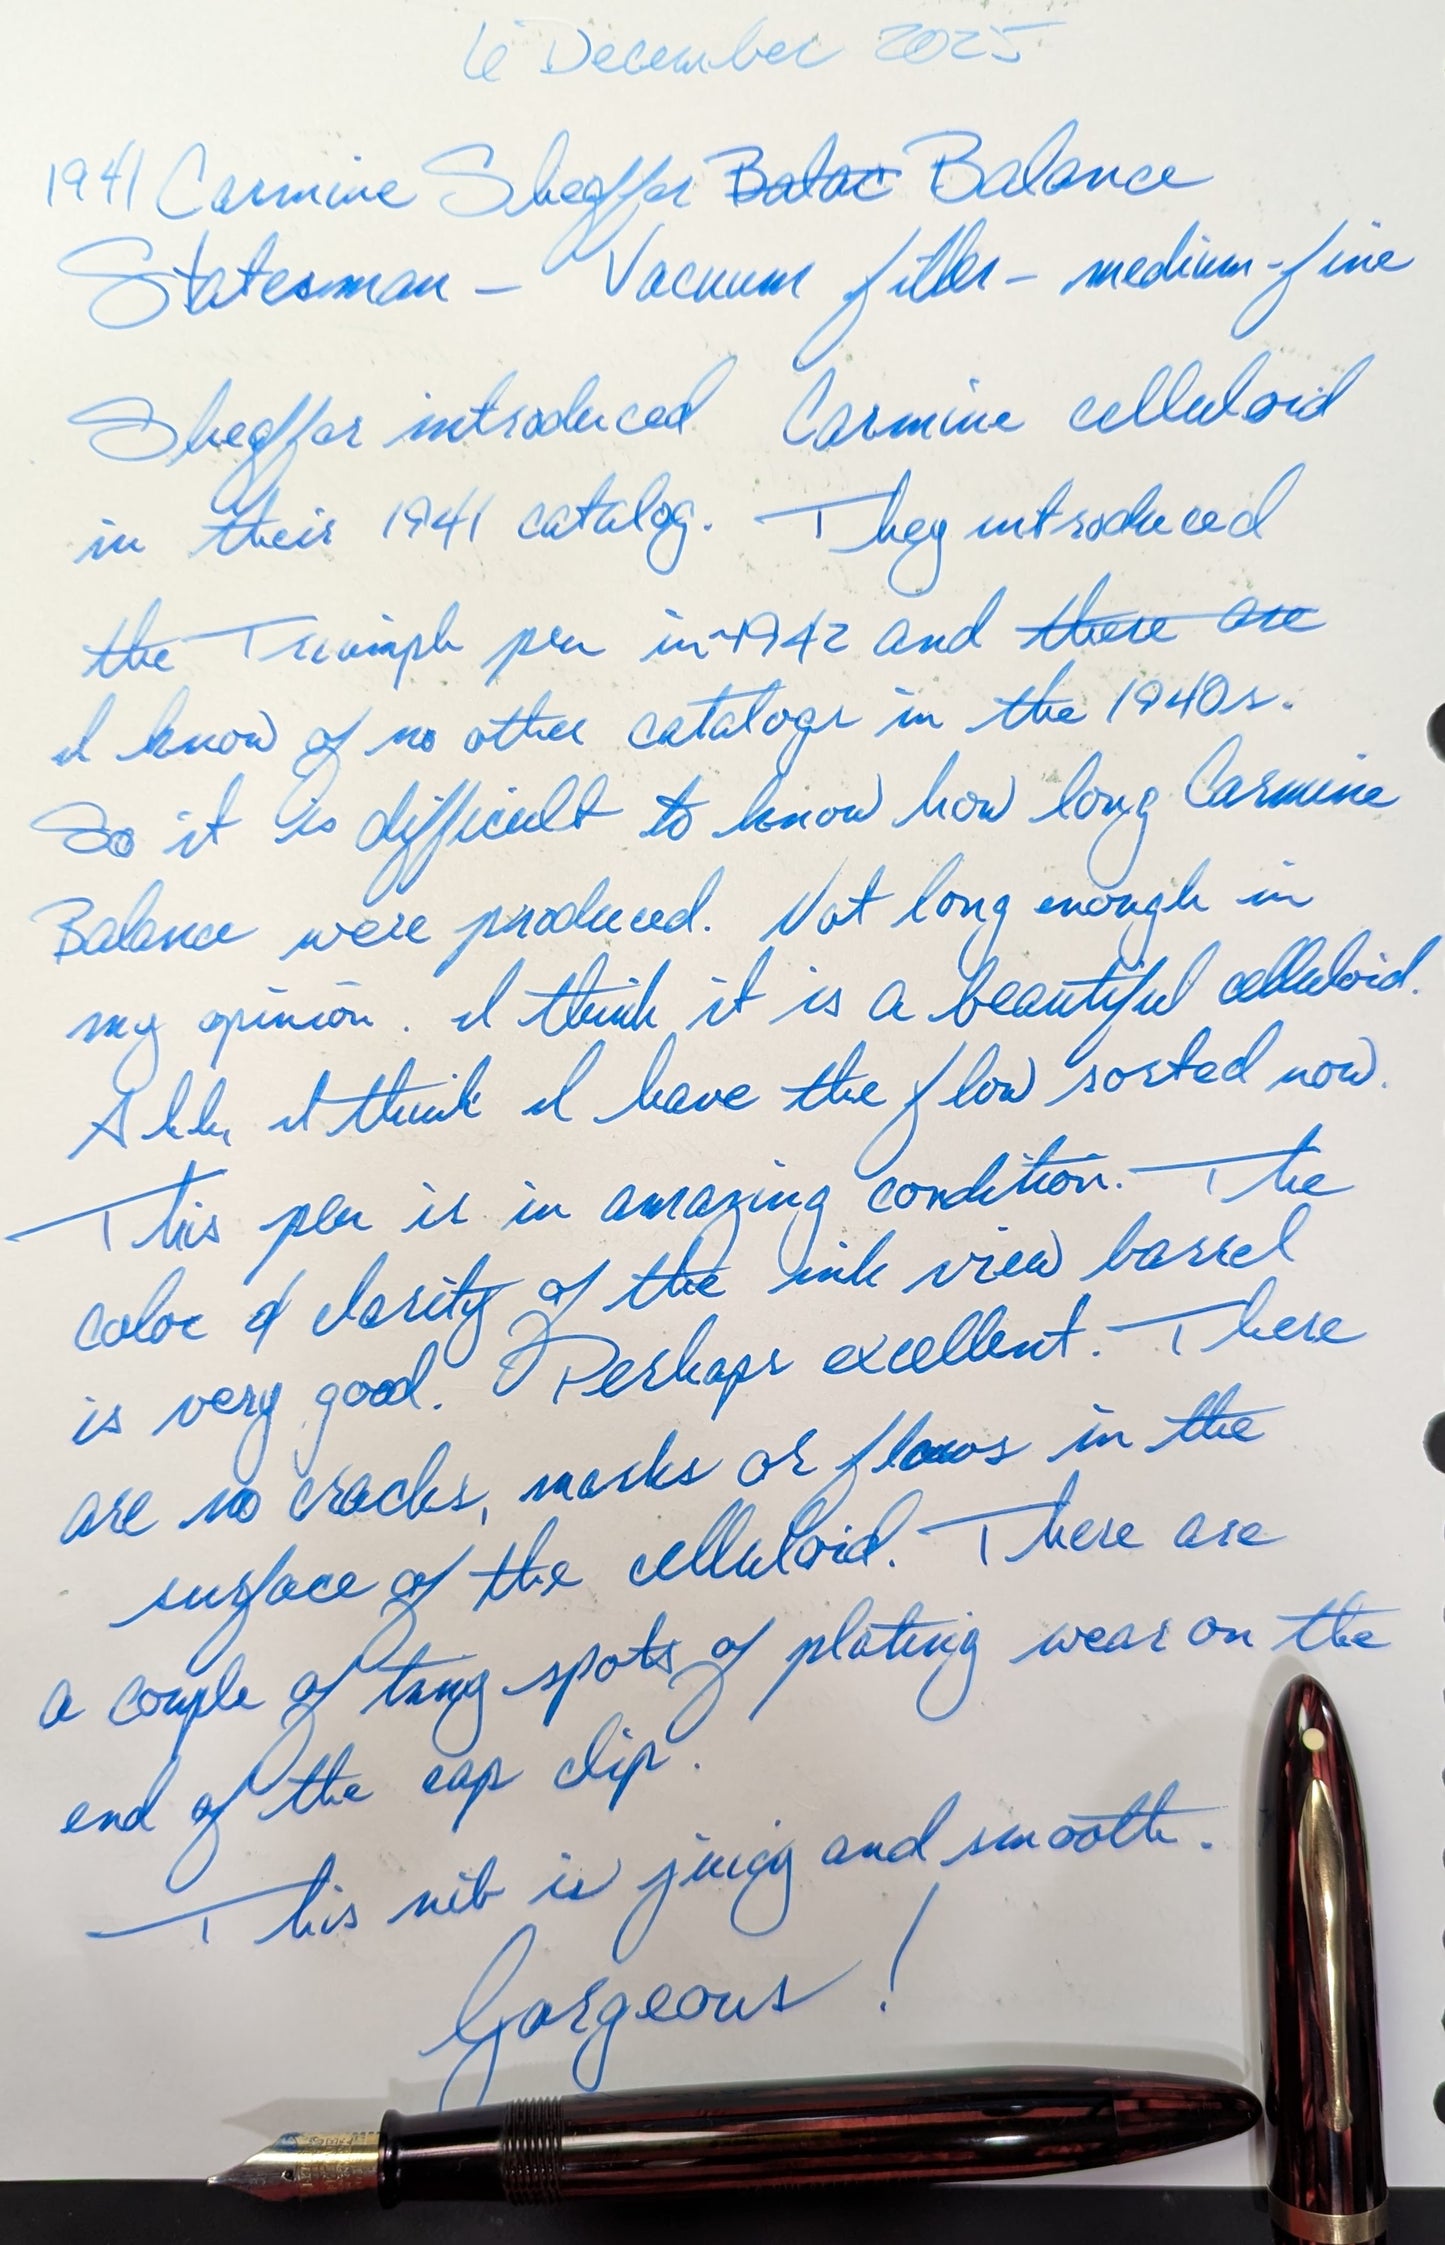 6 December 2025
1941 Carmine Sheaffer Balac Balance
Statesman - Vacuum filler - medium-fine
Sheaffer introduced Carmine celluloid
in their 1941 catalog. They introduced
the Triumph pen in ~1942 and there are
I know of no other catalogs in the 1940s.
So it is difficult to know how long Carmine
Balance were produced. Not long enough in
my opinion. I think it is a beautiful celluloid.
Ahh, I think I have the flow sorted now.
This pen is in amazing condition. The
color & clarity of the ink view barrel
is very good. Perhaps excellent. There
are no cracks, marks or flaws in the
surface of the celluloid. There are
a couple of tiny spots of plating wear on the
end of the cap clip.
This nib is juicy and smooth.
Gorgeous!